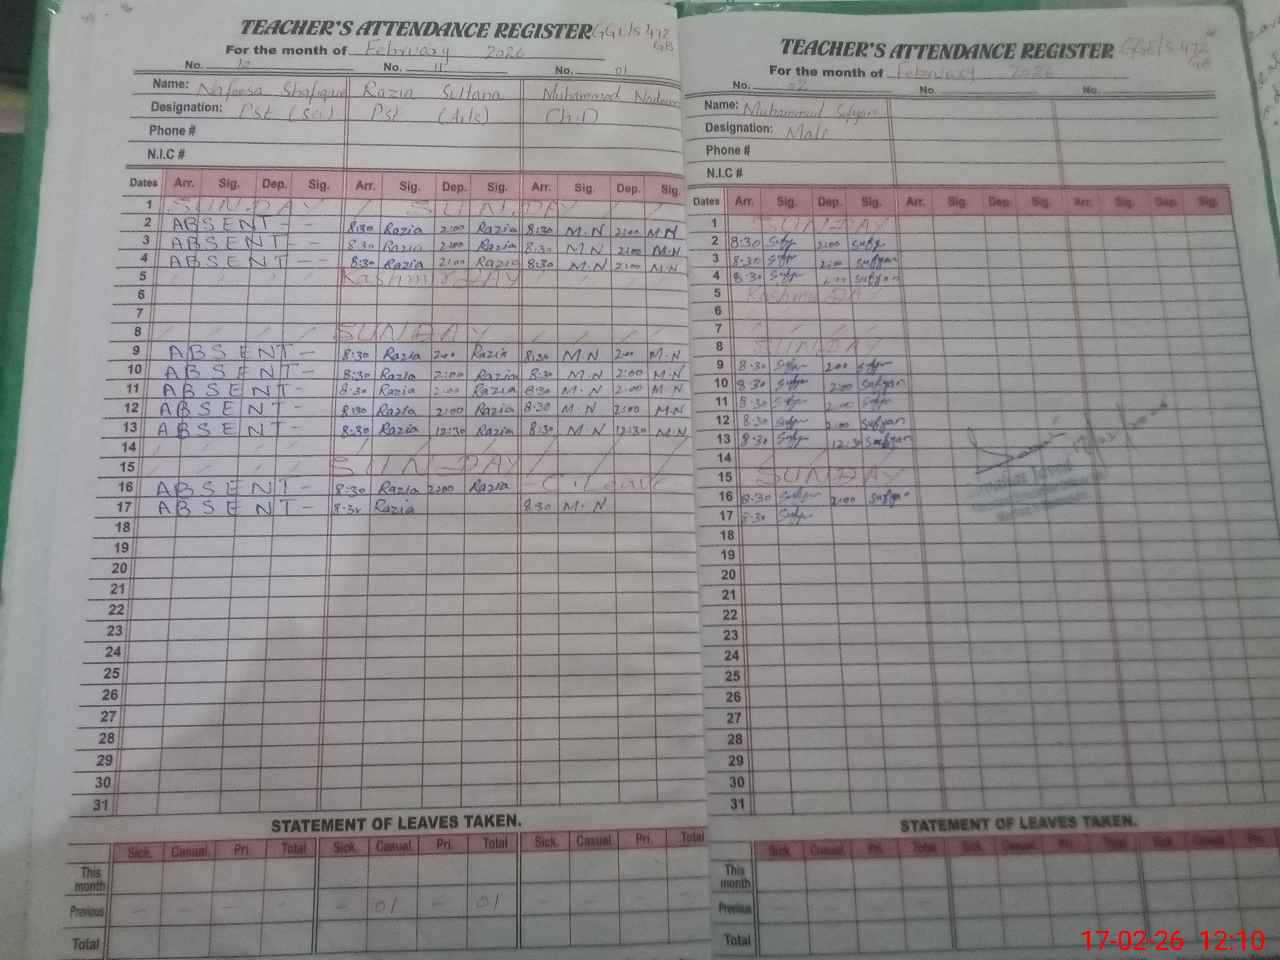 TEACHER'S ATTENDANCE REGISTER
For the month of February 2026
No. 10 No. 11 No. 01
Name: Nafeesa Shafique Razia Sultana Muhammad Nadeem
Designation: Pst (Sci) Pst (Arts) Ch.D
Phone #
N.I.C #
Dates Arr. Sig. Dep. Sig. Arr. Sig. Dep. Sig. Arr. Sig. Dep. Sig.
1 SUNDAY SUNDAY
2 ABSENT - - 8:30 Razia 2:00 Razia 8:30 M.N 2:00 M.N
3 ABSENT - 8:30 Razia 2:00 Razia 8:30 M.N 2:00 M.N
4 ABSENT - - 8:30 Razia 2:00 Razia 8:30 M.N 2:00 M.N
5 Kashmir DAY
6
7
8 SUNDAY
9 ABSENT - 8:30 Razia 2:00 Razia 8:30 M.N 2:00 M.N
10 ABSENT - 8:30 Razia 2:00 Razia 8:30 M.N 2:00 M.N
11 ABSENT - 8:30 Razia 2:00 Razia 8:30 M.N 2:00 M.N
12 ABSENT - 8:30 Razia 2:00 Razia 8:30 M.N 2:00 M.N
13 ABSENT - 8:30 Razia 12:30 Razia 8:30 M.N 12:30 M.N
14
15 SUNDAY
16 ABSENT - 8:30 Razia 2:00 Razia - C. leave
17 ABSENT - 8:30 Razia 8:30 M.N
18
19
20
21
22
23
24
25
26
27
28
29
30
31
STATEMENT OF LEAVES TAKEN.
Sick. Casual. Pri. Total Sick. Casual. Pri. Total Sick. Casual. Pri. Total
This month
Previous - - - - - 01 - 01 - - - -
Total
TEACHER'S ATTENDANCE REGISTER
For the month of February 2026
No. 02 No. No.
Name: Muhammad Sufyan
Designation: Mali
Phone #
N.I.C #
Dates Arr. Sig. Dep. Sig. Arr. Sig. Dep. Sig. Arr. Sig. Dep. Sig.
1 SUNDAY
2 8:30 2:00
3 8:30 2:00 Sufyan
4 8:30 2:00 Sufyan
5 Kashmir DAY
6
7
8 SUNDAY
9 8:30 2:00 Sufyan
10 8:30 2:00 Sufyan
11 8:30 2:00
12 8:30 2:00 Sufyan
13 8:30 12:30 Sufyan
14
15 SUNDAY
16 8:30 2:00 Sufyan
17 8:30
18
19
20
21
22
23
24
25
26
27
28
29
30
31
STATEMENT OF LEAVES TAKEN.
Sick. Casual. Pri. Total Sick. Casual. Pri. Total Sick. Casual. Pri.
This month
Previous - - - -
Total
17-02-26 12:10